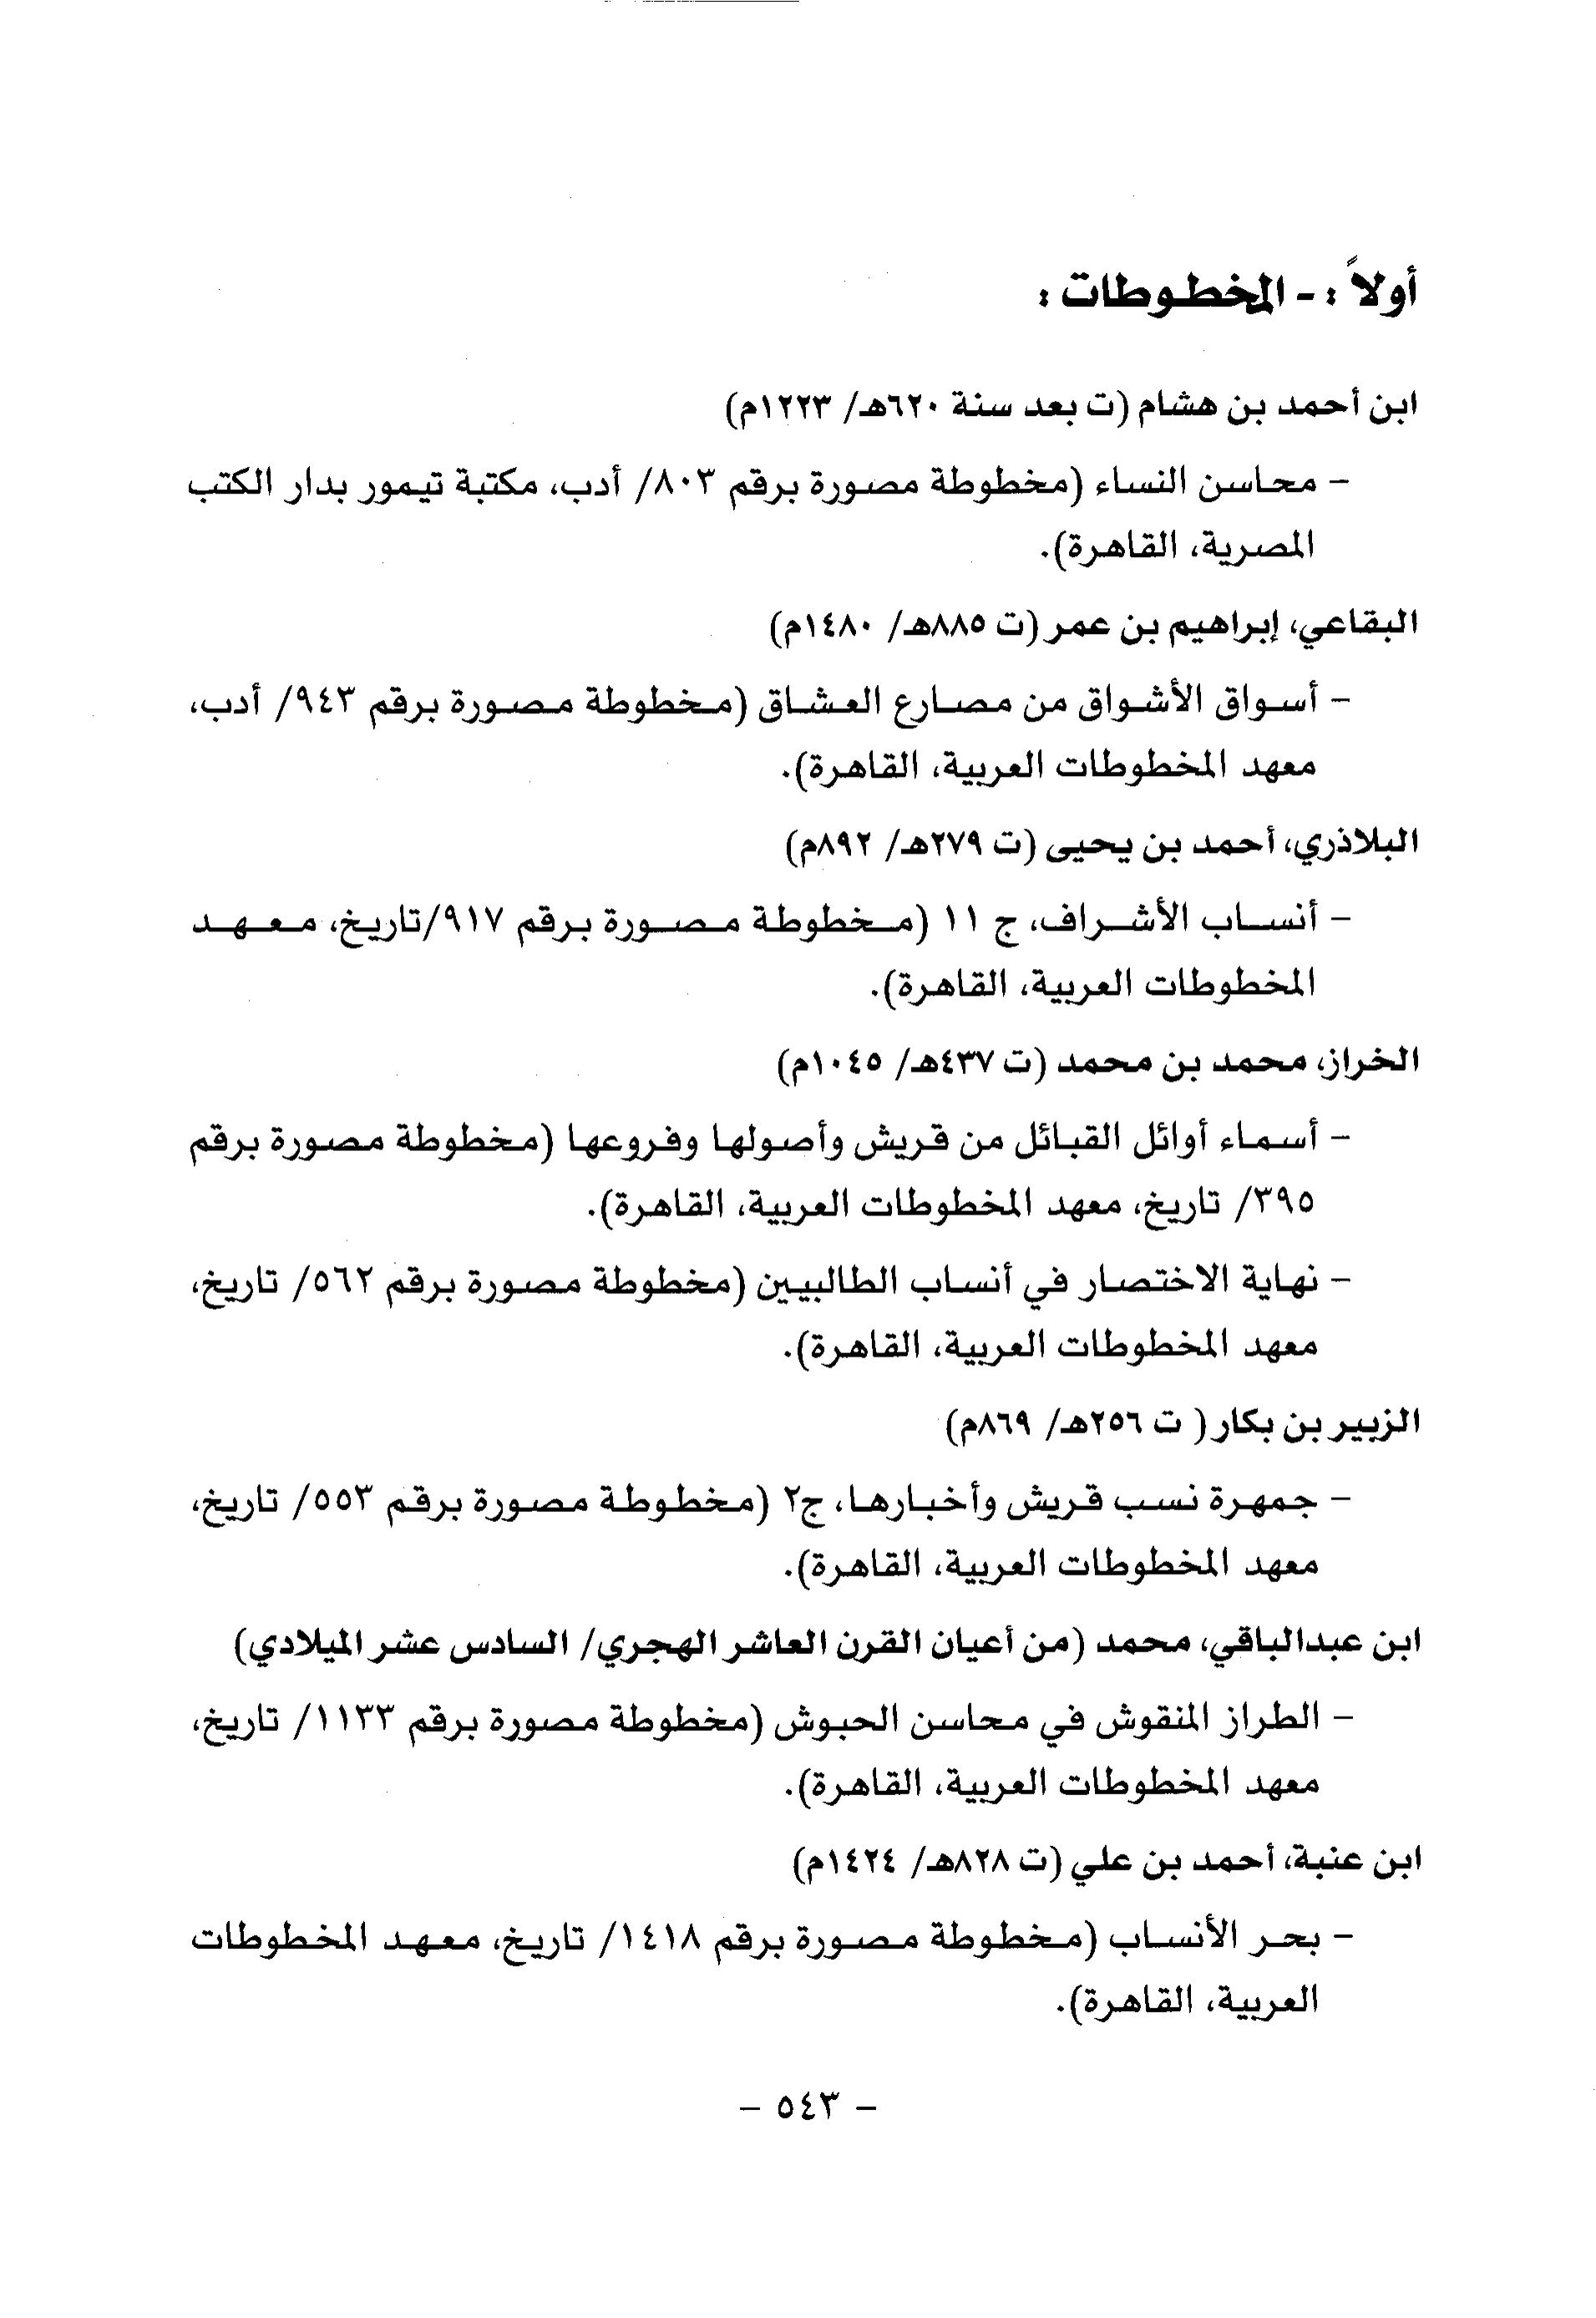 أولاً : - المخطوطات :
ابن أحمد بن هشام (ت بعد سنة ٦٢٠هـ/ ١٢٢٣م)
- محاسن النساء (مخطوطة مصورة برقم ٨٠٣/ أدب، مكتبة تيمور بدار الكتب
المصرية، القاهرة).
البقاعي، إبراهيم بن عمر (ت ٨٨٥هـ/ ١٤٨٠م)
- أسواق الأشواق من مصارع العشاق (مخطوطة مصورة برقم ٩٤٣/ أدب،
معهد المخطوطات العربية، القاهرة).
البلاذري، أحمد بن يحيى (ت ٢٧٩هـ/ ٨٩٢م)
- أنساب الأشراف، ج ١١ (مخطوطة مصورة برقم ٩١٧/تاريخ، معهد
المخطوطات العربية، القاهرة).
الخراز، محمد بن محمد (ت ٤٣٧هـ/ ١٠٤٥م)
- أسماء أوائل القبائل من قريش وأصولها وفروعها (مخطوطة مصورة برقم
٣٩٥/ تاريخ، معهد المخطوطات العربية، القاهرة).
- نهاية الاختصار في أنساب الطالبيين (مخطوطة مصورة برقم ٥٦٢/ تاريخ،
معهد المخطوطات العربية، القاهرة).
الزبير بن بكار ( ت ٢٥٦هـ/ ٨٦٩م)
- جمهرة نسب قريش وأخبارها، ج٢ (مخطوطة مصورة برقم ٥٥٣/ تاريخ،
معهد المخطوطات العربية، القاهرة).
ابن عبدالباقي، محمد (من أعيان القرن العاشر الهجري/ السادس عشر الميلادي)
- الطراز المنقوش في محاسن الحبوش (مخطوطة مصورة برقم ١١٣٣/ تاريخ،
معهد المخطوطات العربية، القاهرة).
ابن عنبة، أحمد بن علي (ت ٨٢٨هـ/ ١٤٢٤م)
- بحر الأنساب (مخطوطة مصورة برقم ١٤١٨/ تاريخ، معهد المخطوطات
العربية، القاهرة).
- ٥٤٣ -